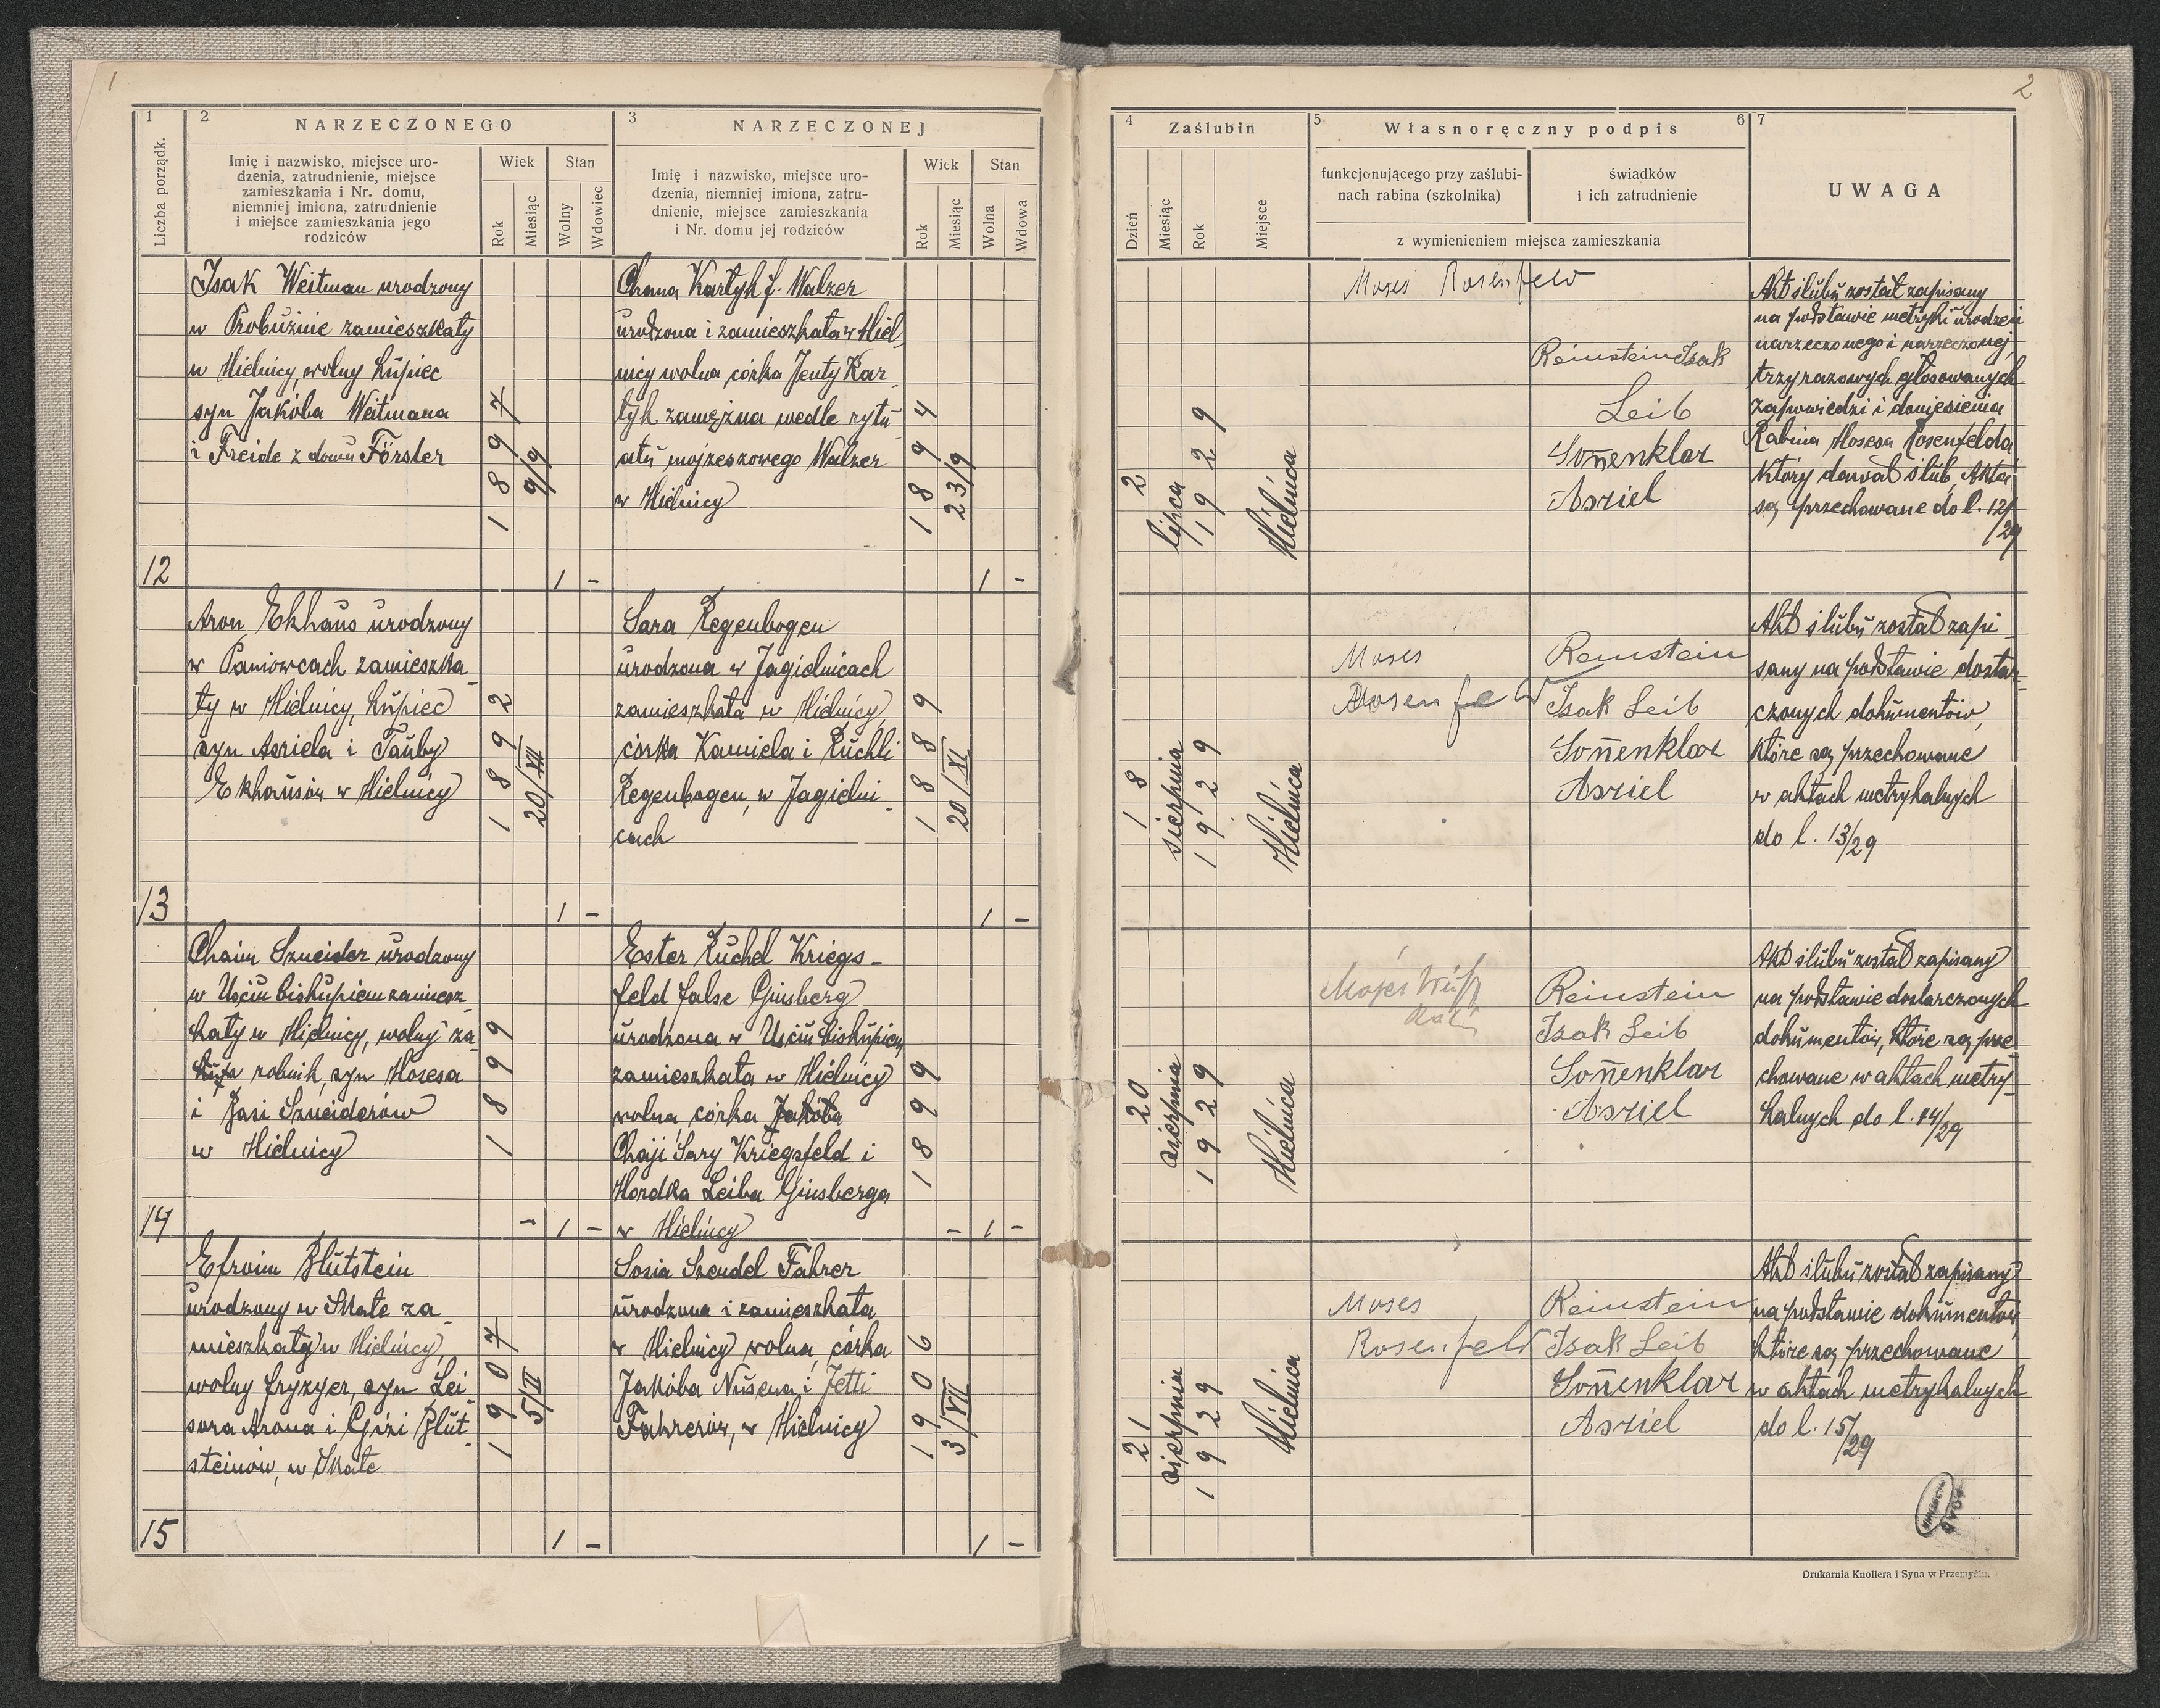 1
1
2
NARZECZONEGO
3
NARZECZONEJ
Liczba porządk.
Imię i nazwisko, miejsce uro-
dzenia, zatrudnienie, miejsce
zamieszkania i Nr. domu,
niemniej imiona, zatrudnienie
i miejsce zamieszkania jego
rodziców
Wiek
Stan
Rok
Miesiąc
Wolny
Wdowiec
Imię i nazwisko, miejsce uro-
dzenia, niemniej imiona, zatru-
dnienie, miejsce zamieszkania
i Nr. domu jej rodziców
Wiek
Stan
Rok
Miesiąc
Wolna
Wdowa
12
Isak Weitman urodzony
w Probużnie zamieszkały
w Mielnicy, wolny kupiec
syn Jakóba Weitmana
i Freide z domu Förster
1897
9/9
1 -
Chana Kartyk f. Walzer
urodzona i zamieszkała w Miel-
nicy wolna córka Jenty Kar-
tyk zamężna wedle rytu-
ału mojżeszowego Walzer
w Mielnicy
1894
23/9
1 -
13
Aron Ekhaus urodzony
w Paniowcach zamieszka-
ły w Mielnicy, kupiec
syn Asriela i Tauby
Ekhausów w Mielnicy
1892
20/VII
1 -
Sara Regenbogen
urodzona w Jagielnicach
zamieszkała w Mielnicy,
córka Kamiela i Ruchli
Regenbogen, w Jagielni-
cach
1889
20/XI
1 -
14
Chaim Szneider urodzony
w Uściu biskupiem zamiesz-
kały w Mielnicy, wolny za-
robnik, syn Mosesa
i Basi Szneiderów
w Mielnicy
1899
- 1 -
Ester Ruchel Kriegs-
feld false Ginsberg
urodzona w Uściu biskupiem
zamieszkała w Mielnicy
wolna, córka Jakóba
Chaji Sary Kriegsfeld i
Mordka Leiba Ginsberga
w Mielnicy
1899
- 1 -
15
Efroim Blutstein
urodzony w Skale za-
mieszkały w Mielnicy,
wolny fryzyer, syn Lei-
sora Arona i Gizi Blut-
steinów, w Skale
1907
5/II
1 -
Sosia Szendel Fahrer
urodzona i zamieszkała
w Mielnicy wolna, córka
Jakóba Nusena i Jetti
Fahrerów, w Mielnicy
1906
3/VII
1 -
2
4
Zaślubin
5
Własnoręczny podpis
6
7
Dzień
Miesiąc
Rok
Miejsce
funkcjonującego przy zaślubi-
nach rabina (szkolnika)
świadków
i ich zatrudnienie
z wymienieniem miejsca zamieszkania
UWAGA
2
lipca
1929
Mielnica
Moses Rosenfeld
Reinstein Isak
Leib
Sonnenklar
Asriel
Akt ślubu został zapisany
na podstawie metryki urodzeń
narzeczonego i narzeczonej,
trzyrazowych głosowanych
zapowiedzi i doniesienia
Rabina Mosesa Rosenfelda
który dawał ślub, Akta
są przechowane do l. 12/
/29
18
sierpnia
1929
Mielnica
Moses
Rosenfeld
Reinstein
Isak Leib
Sonnenklar
Asriel
Akt ślubu został zapi-
sany na podstawie dostar-
czonych dokumentów,
które są przechowane
w aktach metrykalnych
do l. 13/29
20
sierpnia
1929
Mielnica
Reinstein
Isak Leib
Sonnenklar
Asriel
Akt ślubu został zapisany
na podstawie dostarczonych
dokumentów, które są prze
chowane w aktach metry-
kalnych do l. 14/29
21
sierpnia
1929
Mielnica
Moses
Rosenfeld
Reinstein
Isak Leib
Sonnenklar
Asriel
Akt ślubu został zapisany
na podstawie dokumentów
które są przechowane
w aktach metrykalnych
do l. 15/29
Drukarnia Knollera i Syna w Przemyślu.